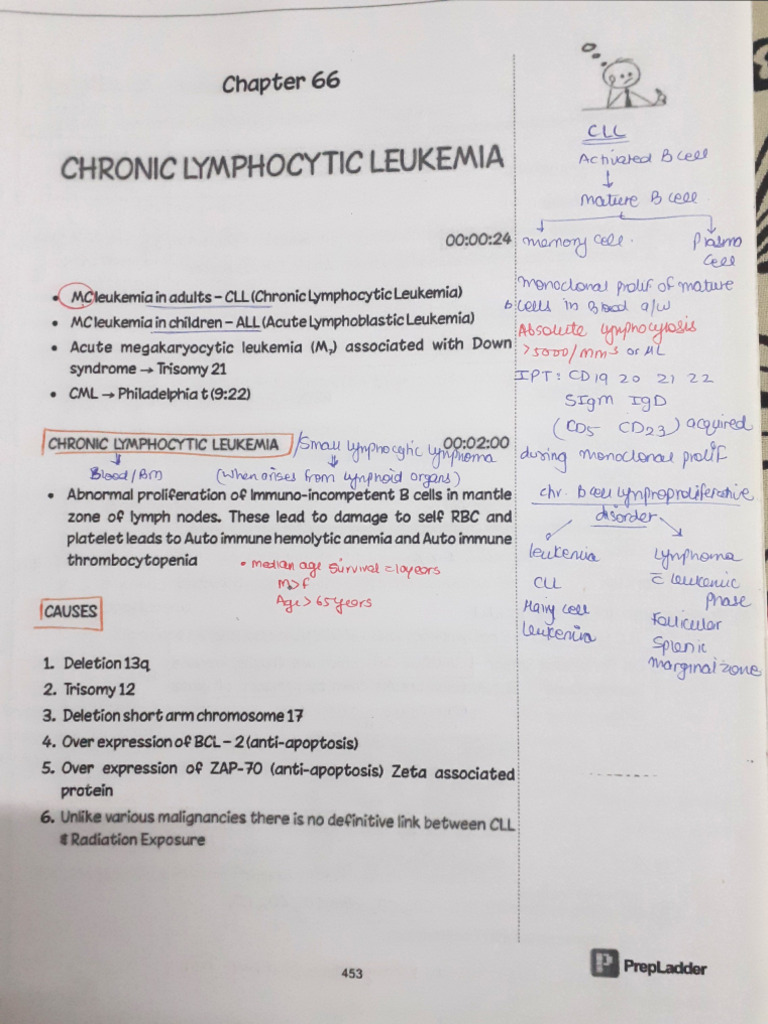 Chapter 66
CHRONIC LYMPHOCYTIC LEUKEMIA
00:00:24
• MC leukemia in adults – CLL (Chronic Lymphocytic Leukemia)
• MC leukemia in children – ALL (Acute Lymphoblastic Leukemia)
• Acute megakaryocytic leukemia (M₇) associated with Down
syndrome → Trisomy 21
• CML → Philadelphia t (9:22)
CHRONIC LYMPHOCYTIC LEUKEMIA /Small lymphocytic lymphoma
00:02:00
↓ ↓
Blood/BM (when arises from lymphoid organs)
• Abnormal proliferation of Immuno-incompetent B cells in mantle
zone of lymph nodes. These lead to damage to self RBC and
platelet leads to Auto immune hemolytic anemia and Auto immune
thrombocytopenia
• median age survival = 10years
M>F
Age > 65 years
CAUSES
1. Deletion 13q
2. Trisomy 12
3. Deletion short arm chromosome 17
4. Over expression of BCL – 2 (anti-apoptosis)
5. Over expression of ZAP-70 (anti-apoptosis) Zeta associated
protein
6. Unlike various malignancies there is no definitive link between CLL
& Radiation Exposure
CLL
Activated B cell
↓
mature B cell
memory cell. Plasma
cell
monoclonal prolif of mature
b cells in Blood a/w
Absolute lymphocytosis
>5000/mm3 or μL
IPT: CD19 20 21 22
SIgm IgD
(CD5 CD23) acquired
during monoclonal prolif
chr. B cell lymphoproliferative
disorder
leukemia Lymphoma
c̄ leukemic
phase
CLL
Hairy cell
leukemia
Follicular
Splenic
marginal zone
453
P PrepLadder